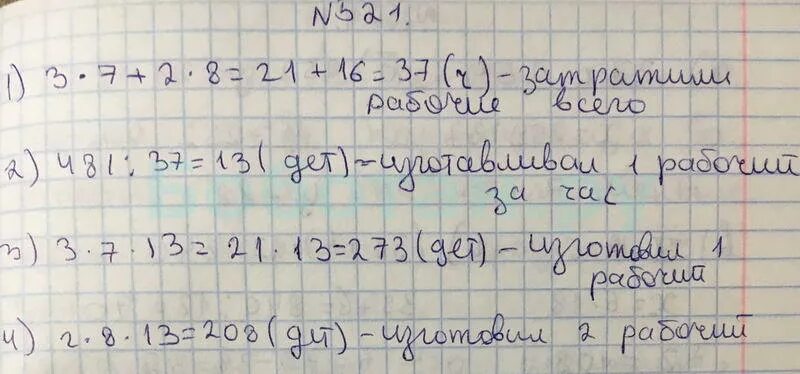 №321.
1) 3·7+2·8=21+16=37(ч)-затратили
рабочие всего
2) 481:37=13(дет)-изготавливал 1 рабочий
за час
3) 3·7·13=21·13=273(дет)-изготовил 1
рабочий
4) 2·8·13=208(дет)-изготовил 2 рабочий